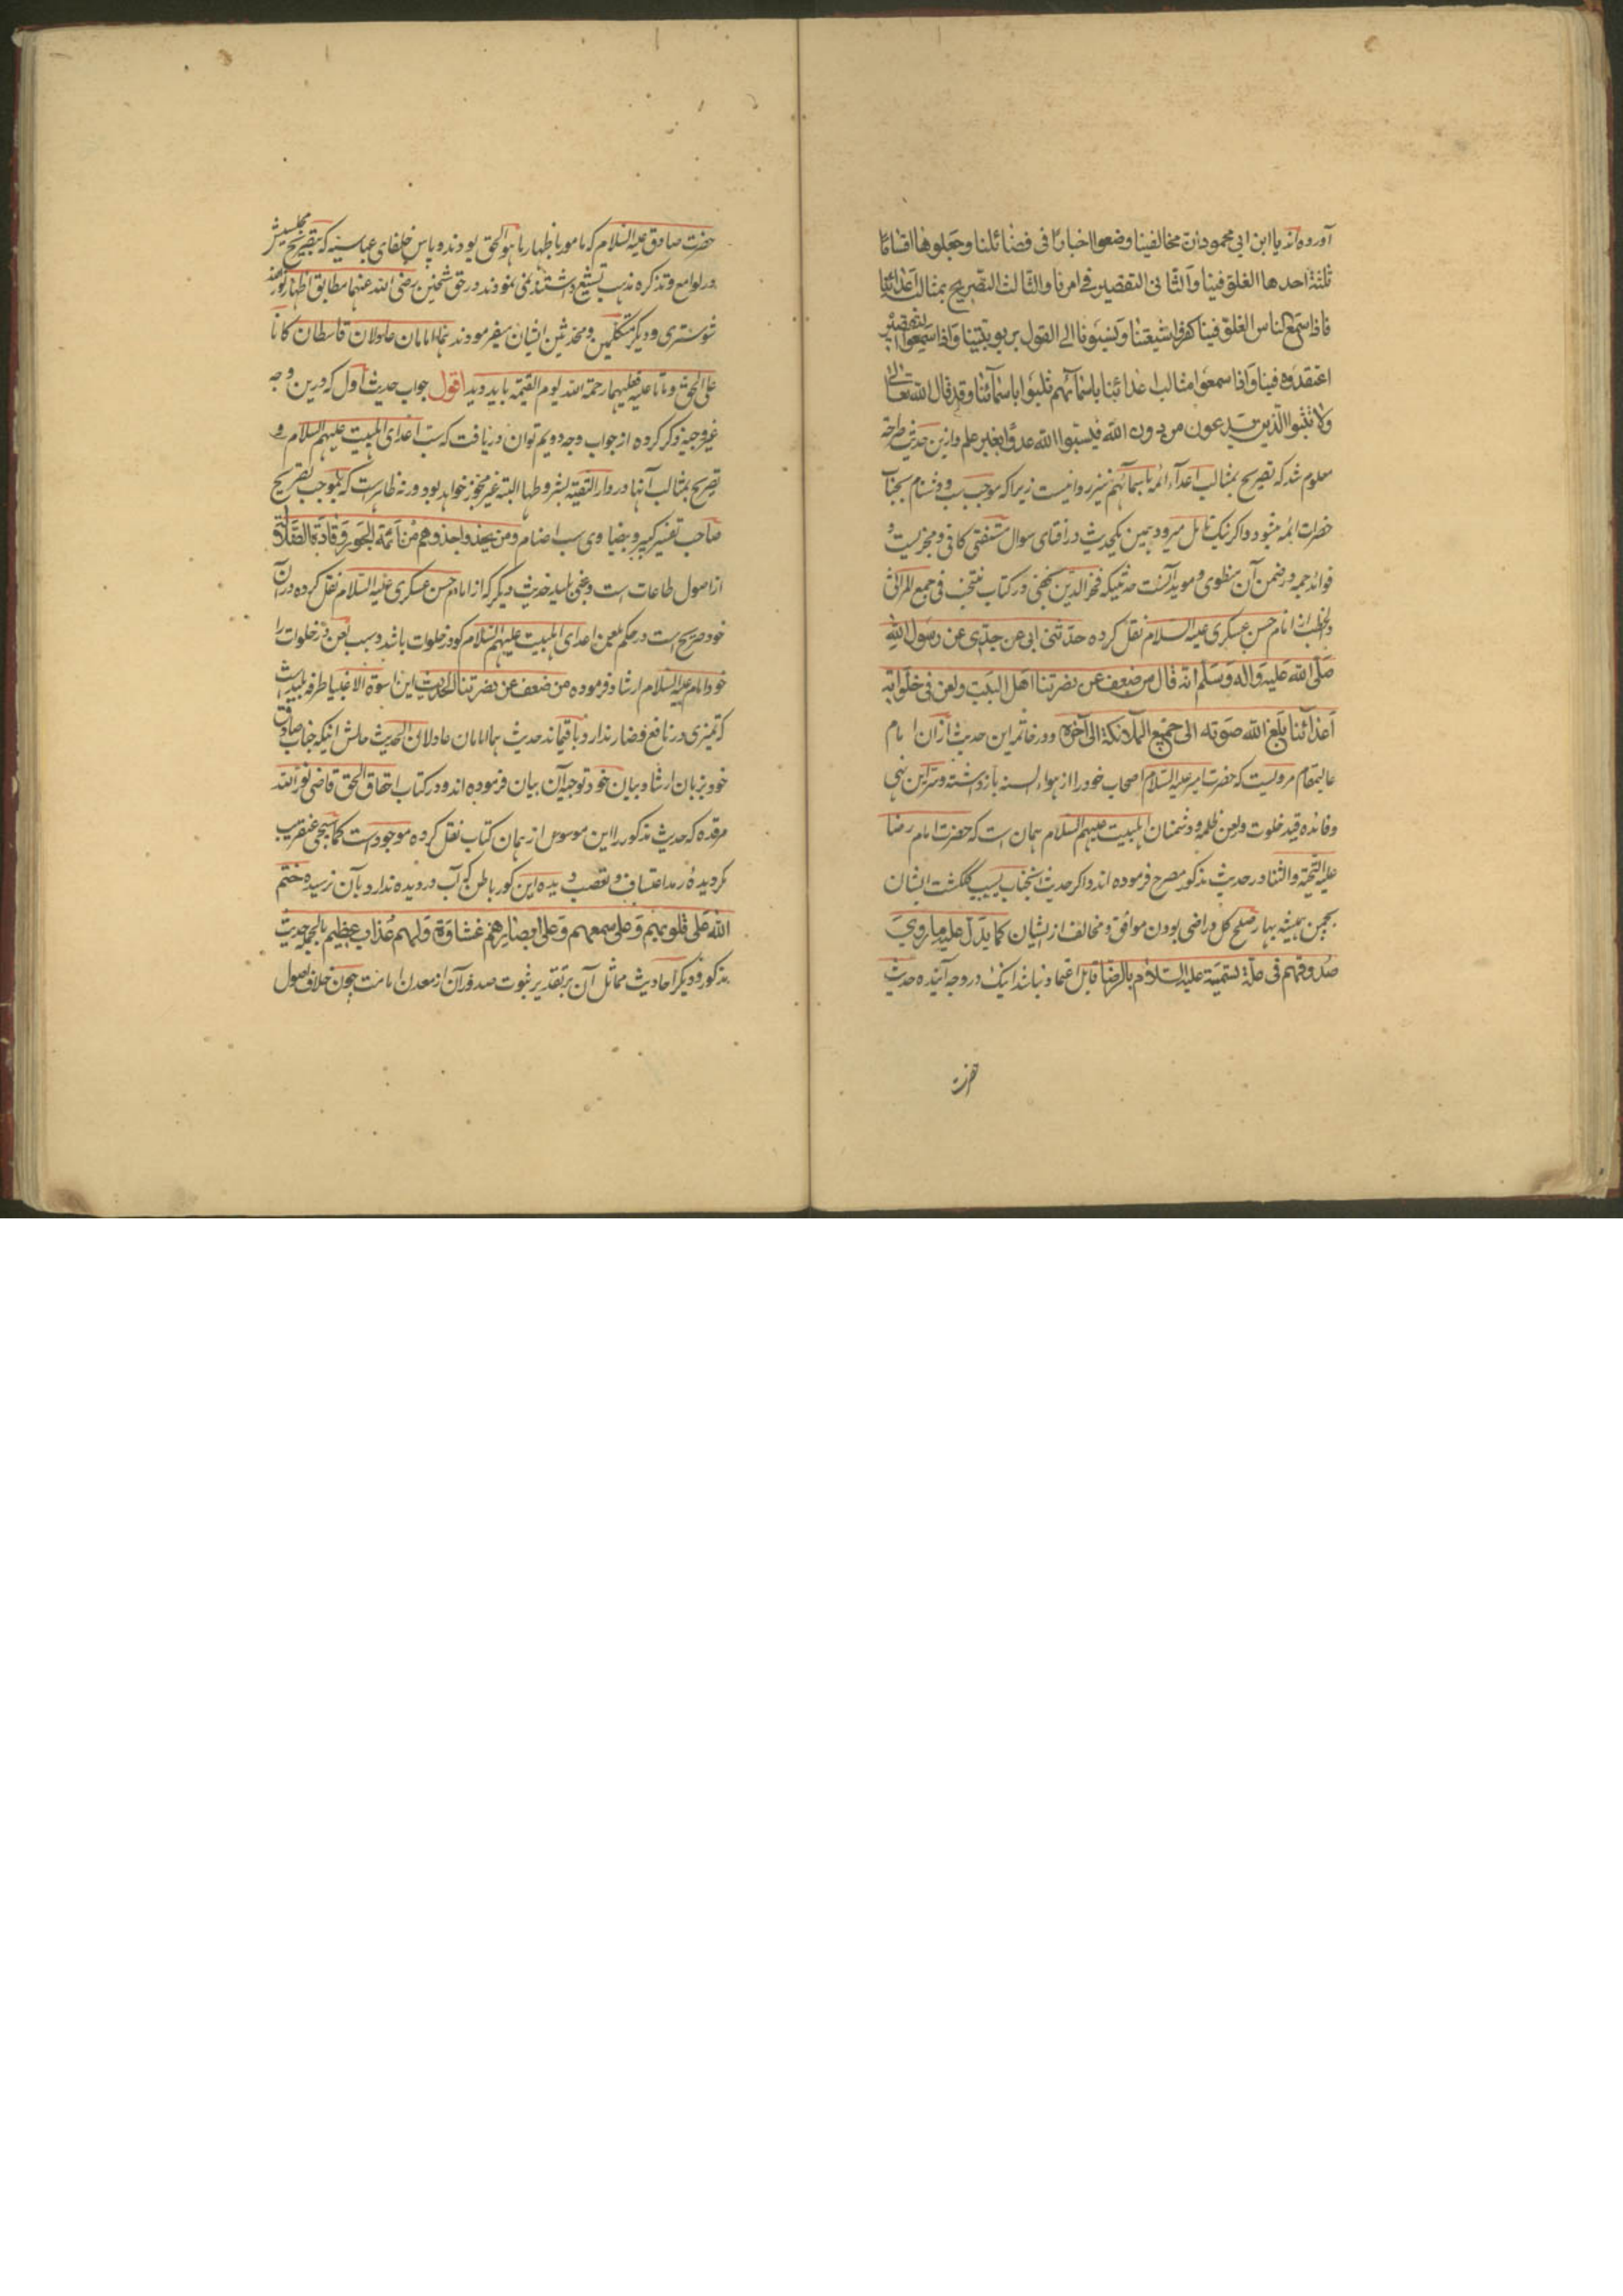 آورده اند یا ابن ابی محمود ان مخالفینا وضعوا اخبارا فی فضائلنا وجعلوها اقساما
ثلثة احدها الغلو فینا والثانی التقصیر فی امرنا والثالث التصریح بمثالب اعدائنا
فاذا سمع الناس الغلو فینا کفروا شیعتنا ونسبوهم الی القول بربوبیتنا واذا سمعوا التقصیر
اعتقدوه فینا واذا سمعوا مثالب اعدائنا باسمائهم ثلبونا باسمائنا وقد قال الله تعالی
ولا تسبوا الذین یدعون من دون الله فیسبوا الله عدوا بغیر علم وازین حدیث صراحة
معلوم شد که تصریح بمثالب اعداء ائمه باسمائهم نیز روا نیست زیرا که موجب سب و دشنام بجناب
حضرات ائمه میشود و اکر نیک تامل میرود همین یکحدیث در افتای سوال مستفتی کافی و مجزیست و
فواید جمه در ضمن آن منطوی و موید آنست حدیثیکه فخر الدین نجفی در کتاب منتخب فی جمع المراثی
والخطب از امام حسن عسکری علیه السلام نقل کرده حدثنی ابی عن جدی عن رسول الله
صلی الله علیه واله وسلم انه قال من ضعف عن نصرتنا اهل البیت ولعن فی خلواته
اعدائنا بلغ الله صوته الی جمیع الملائکة الی آخره و در خاتمه این حدیث ازان امام
عالیمقام مرویست که حضرت امیر علیه السلام اصحاب خود را از هواء السنه بازداشته و سر این نهی
وفائده قید خلوت ولعن ظلمه و دشمنان اهلبیت علیهم السلام همان است که حضرت امام رضا
علیه التحیة والثنا در حدیث مذکور مصرح فرموده اند و اکر حدیث آنجناب بسبب کلکشت ایشان
بچمن همیشه بهار صلح کل و راضی بودن موافق و مخالف از ایشان کما یدل علیه ما روی
صدوقهم فی علة تسمیته علیه السلام بالرضا قابل اعتماد نباشد اینک در وجه آینده حدیث
حضرت
حضرت صادق علیه السلام که مامور باظهار ما هو الحق بودند و پاس خلفای عباسیه که بتصریح مجلسیش
در لوامع و تذکره مذهب تشیع داشتند نمی نمودند در حق شیخین رضی الله عنهما مطابق اظهار نور الله
شوستری و دیکر متکلمین و محدثین ایشان میفرمودند هما امامان عادلان قاسطان کانا
علی الحق وماتا علیه فعلیهما رحمة الله یوم القیمة باید دید اقول جواب حدیث اول که درین وجه
غیر وجیه ذکر کرده از جواب وجه دویم توان دریافت که سب اعدای اهلبیت علیهم السلام و
تصریح بمثالب آنها در دار التقیه بشروطها البته غیر مجوز خواهد بود ورنه ظاهرست که بموجب تصریح
صاحب تفسیر کبیر و بیضاوی سب اصنام ومن یحذو حذوهم من ائمة الجور وقادة الضلال
از اصول طاعات است و بلید حدیث دیکر که از امام حسن عسکری علیه السلام نقل کرده در آن
خود صریح است در حکم بلعن اعدای اهلبیت علیهم السلام کو در خلوات باشد و سبب لعن در خلوات را
خود امام علیه السلام ارشاد فرموده من ضعف عن نصرتنا الحدیث این اسوة الاغبیا طرفه بلیدیست
که تمیزی در نافع و ضار ندارد باقیماند حدیث هما امامان عادلان الحدیث حالش اینکه جناب صادق
خود بزبان ارشاد بیان خود توجیه آن بیان فرموده اند و در کتاب احقاق الحق قاضی نور الله
مرقده که حدیث مذکور را این موسوس از همان کتاب نقل کرده موجود است کما سیجی عنقریب
کردیده رمد اعتساف و تعصب دیده این کور باطن که آب در دیده ندارد بآن نرسیده ختم
الله علی قلوبهم وعلی سمعهم وعلی ابصارهم غشاوة ولهم عذاب عظیم بالجمله حدیث
مذکور و دیکر احادیث مماثل آن بر تقدیر ثبوت صدور آن از معدن امامت چون خلاف اصول